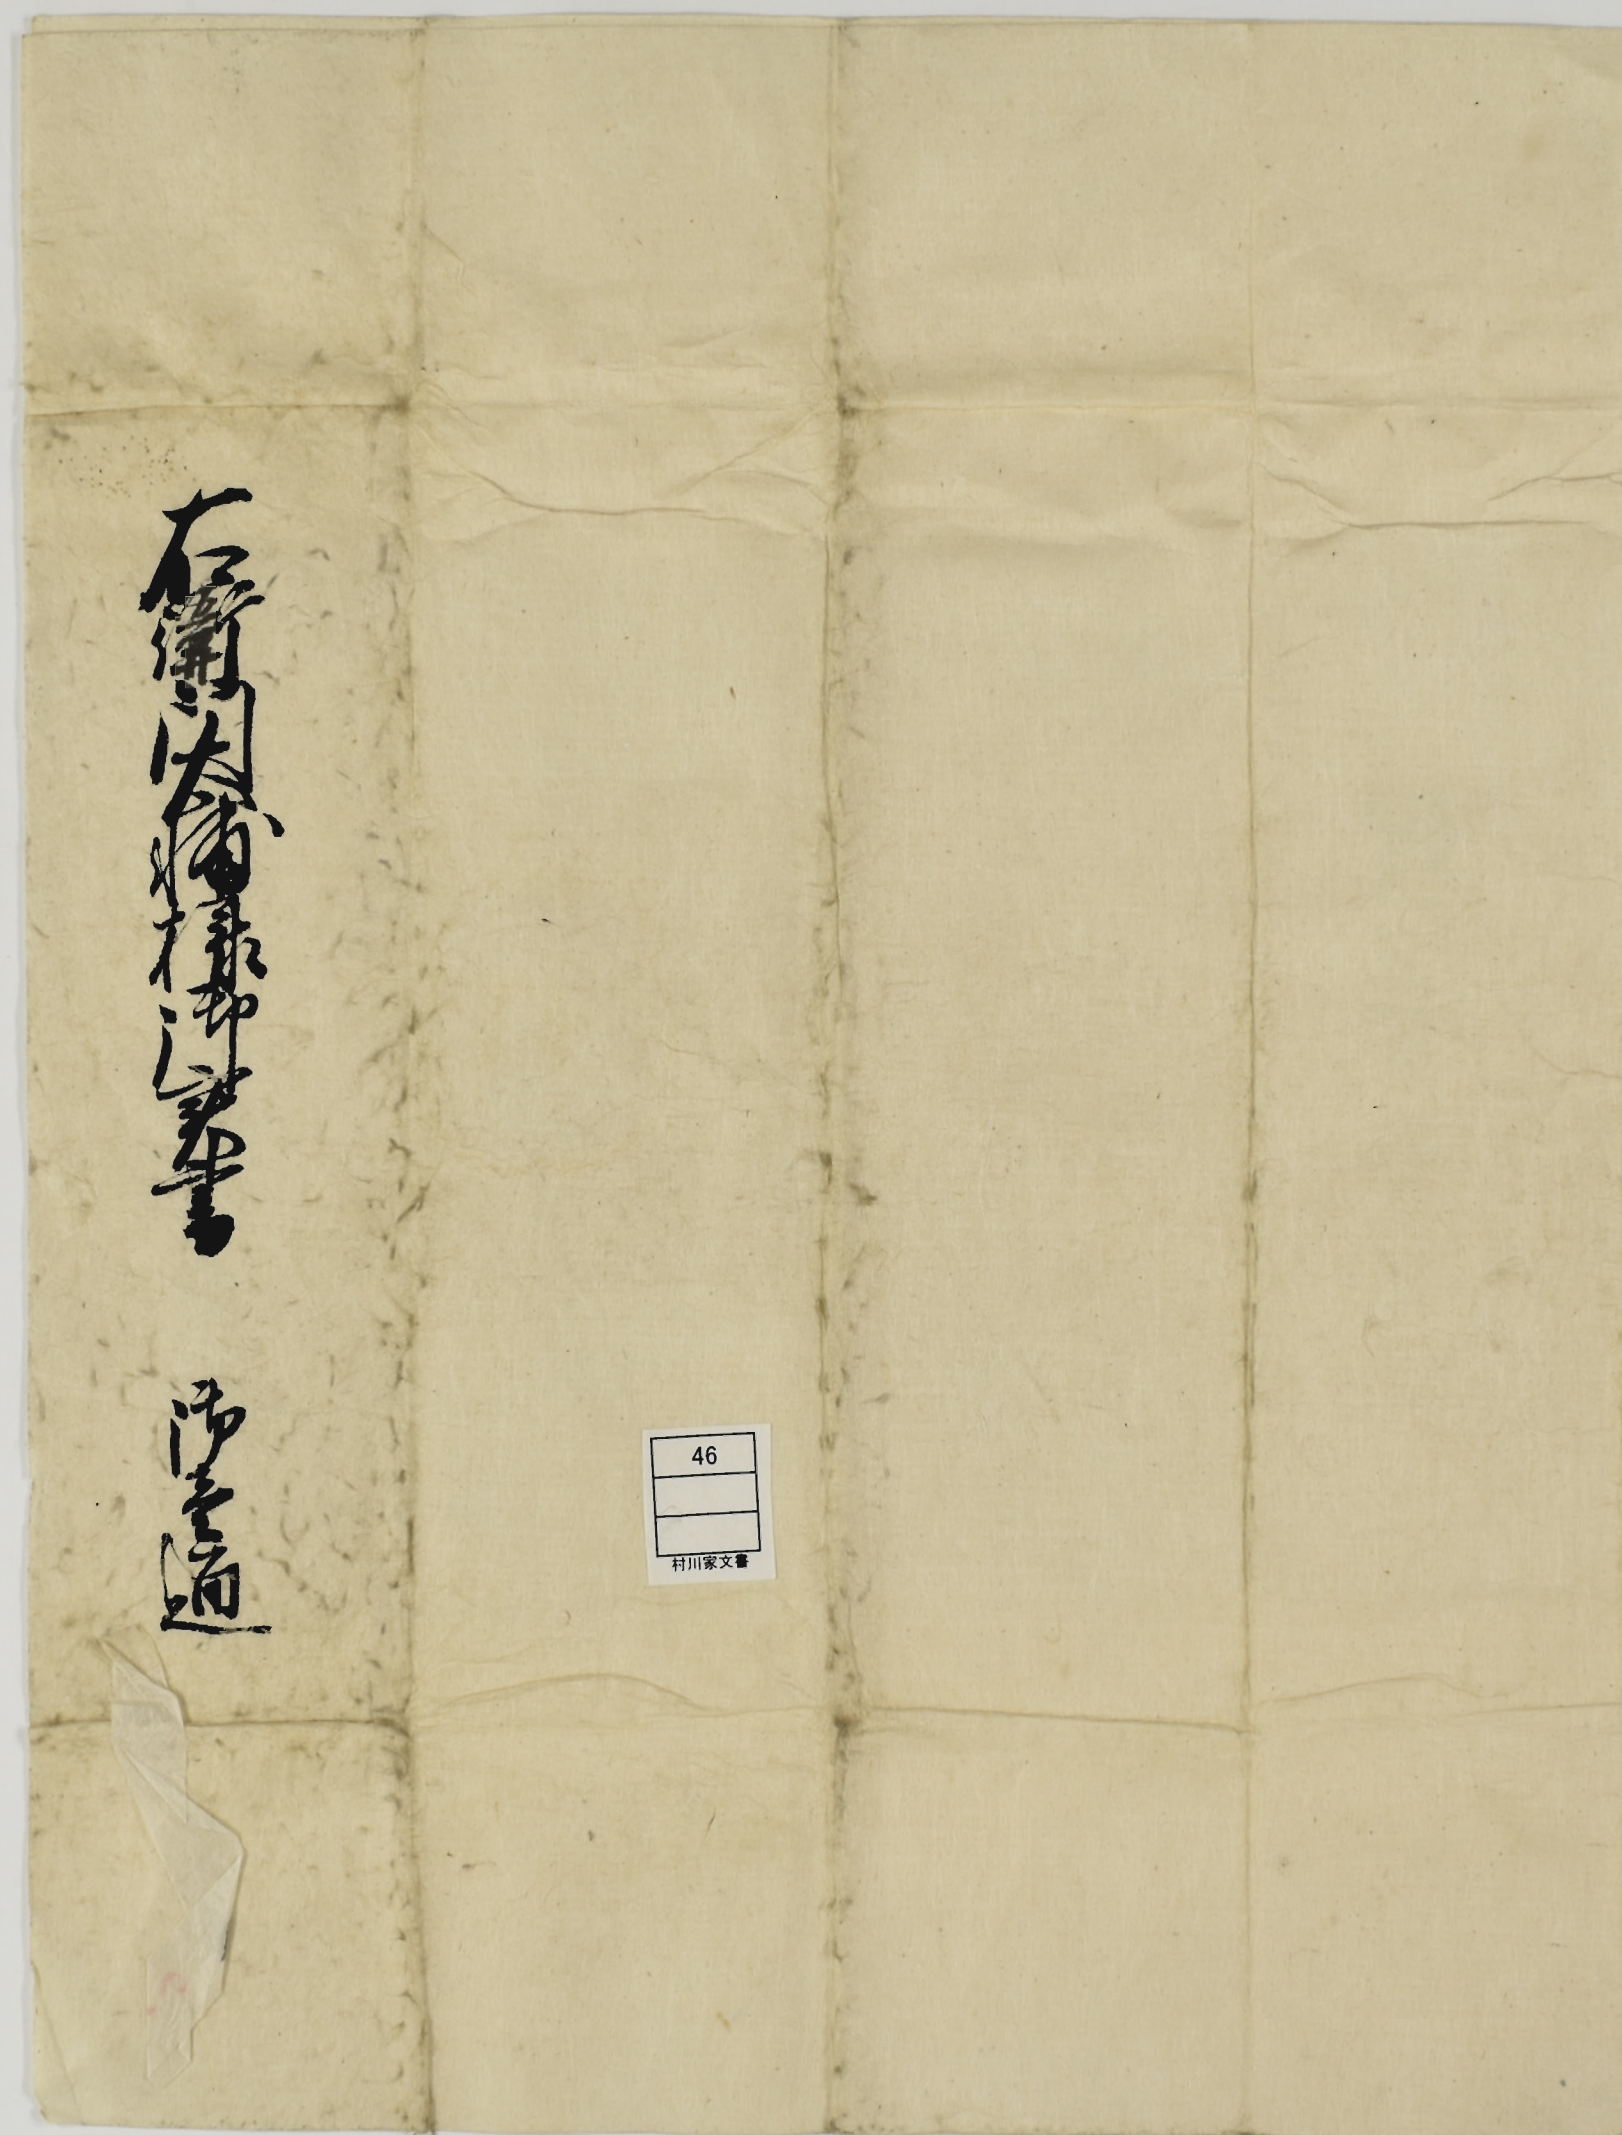 右衛門大輔様御書 御壹通
46
村川家文書